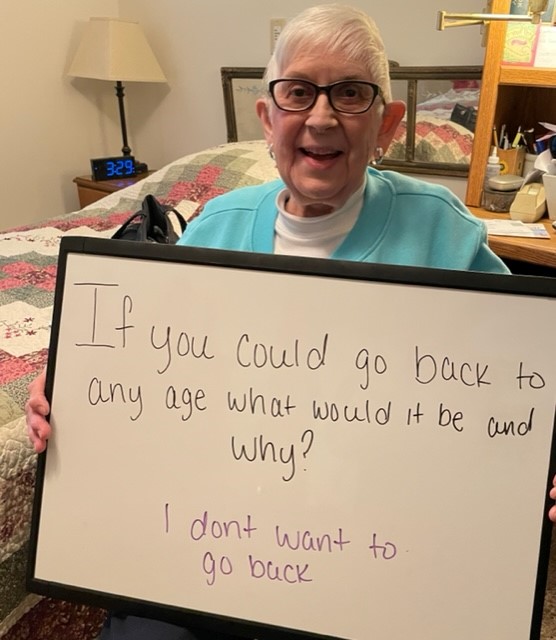 3:29
If you could go back to
any age what would it be and
why?
I dont want to
go back